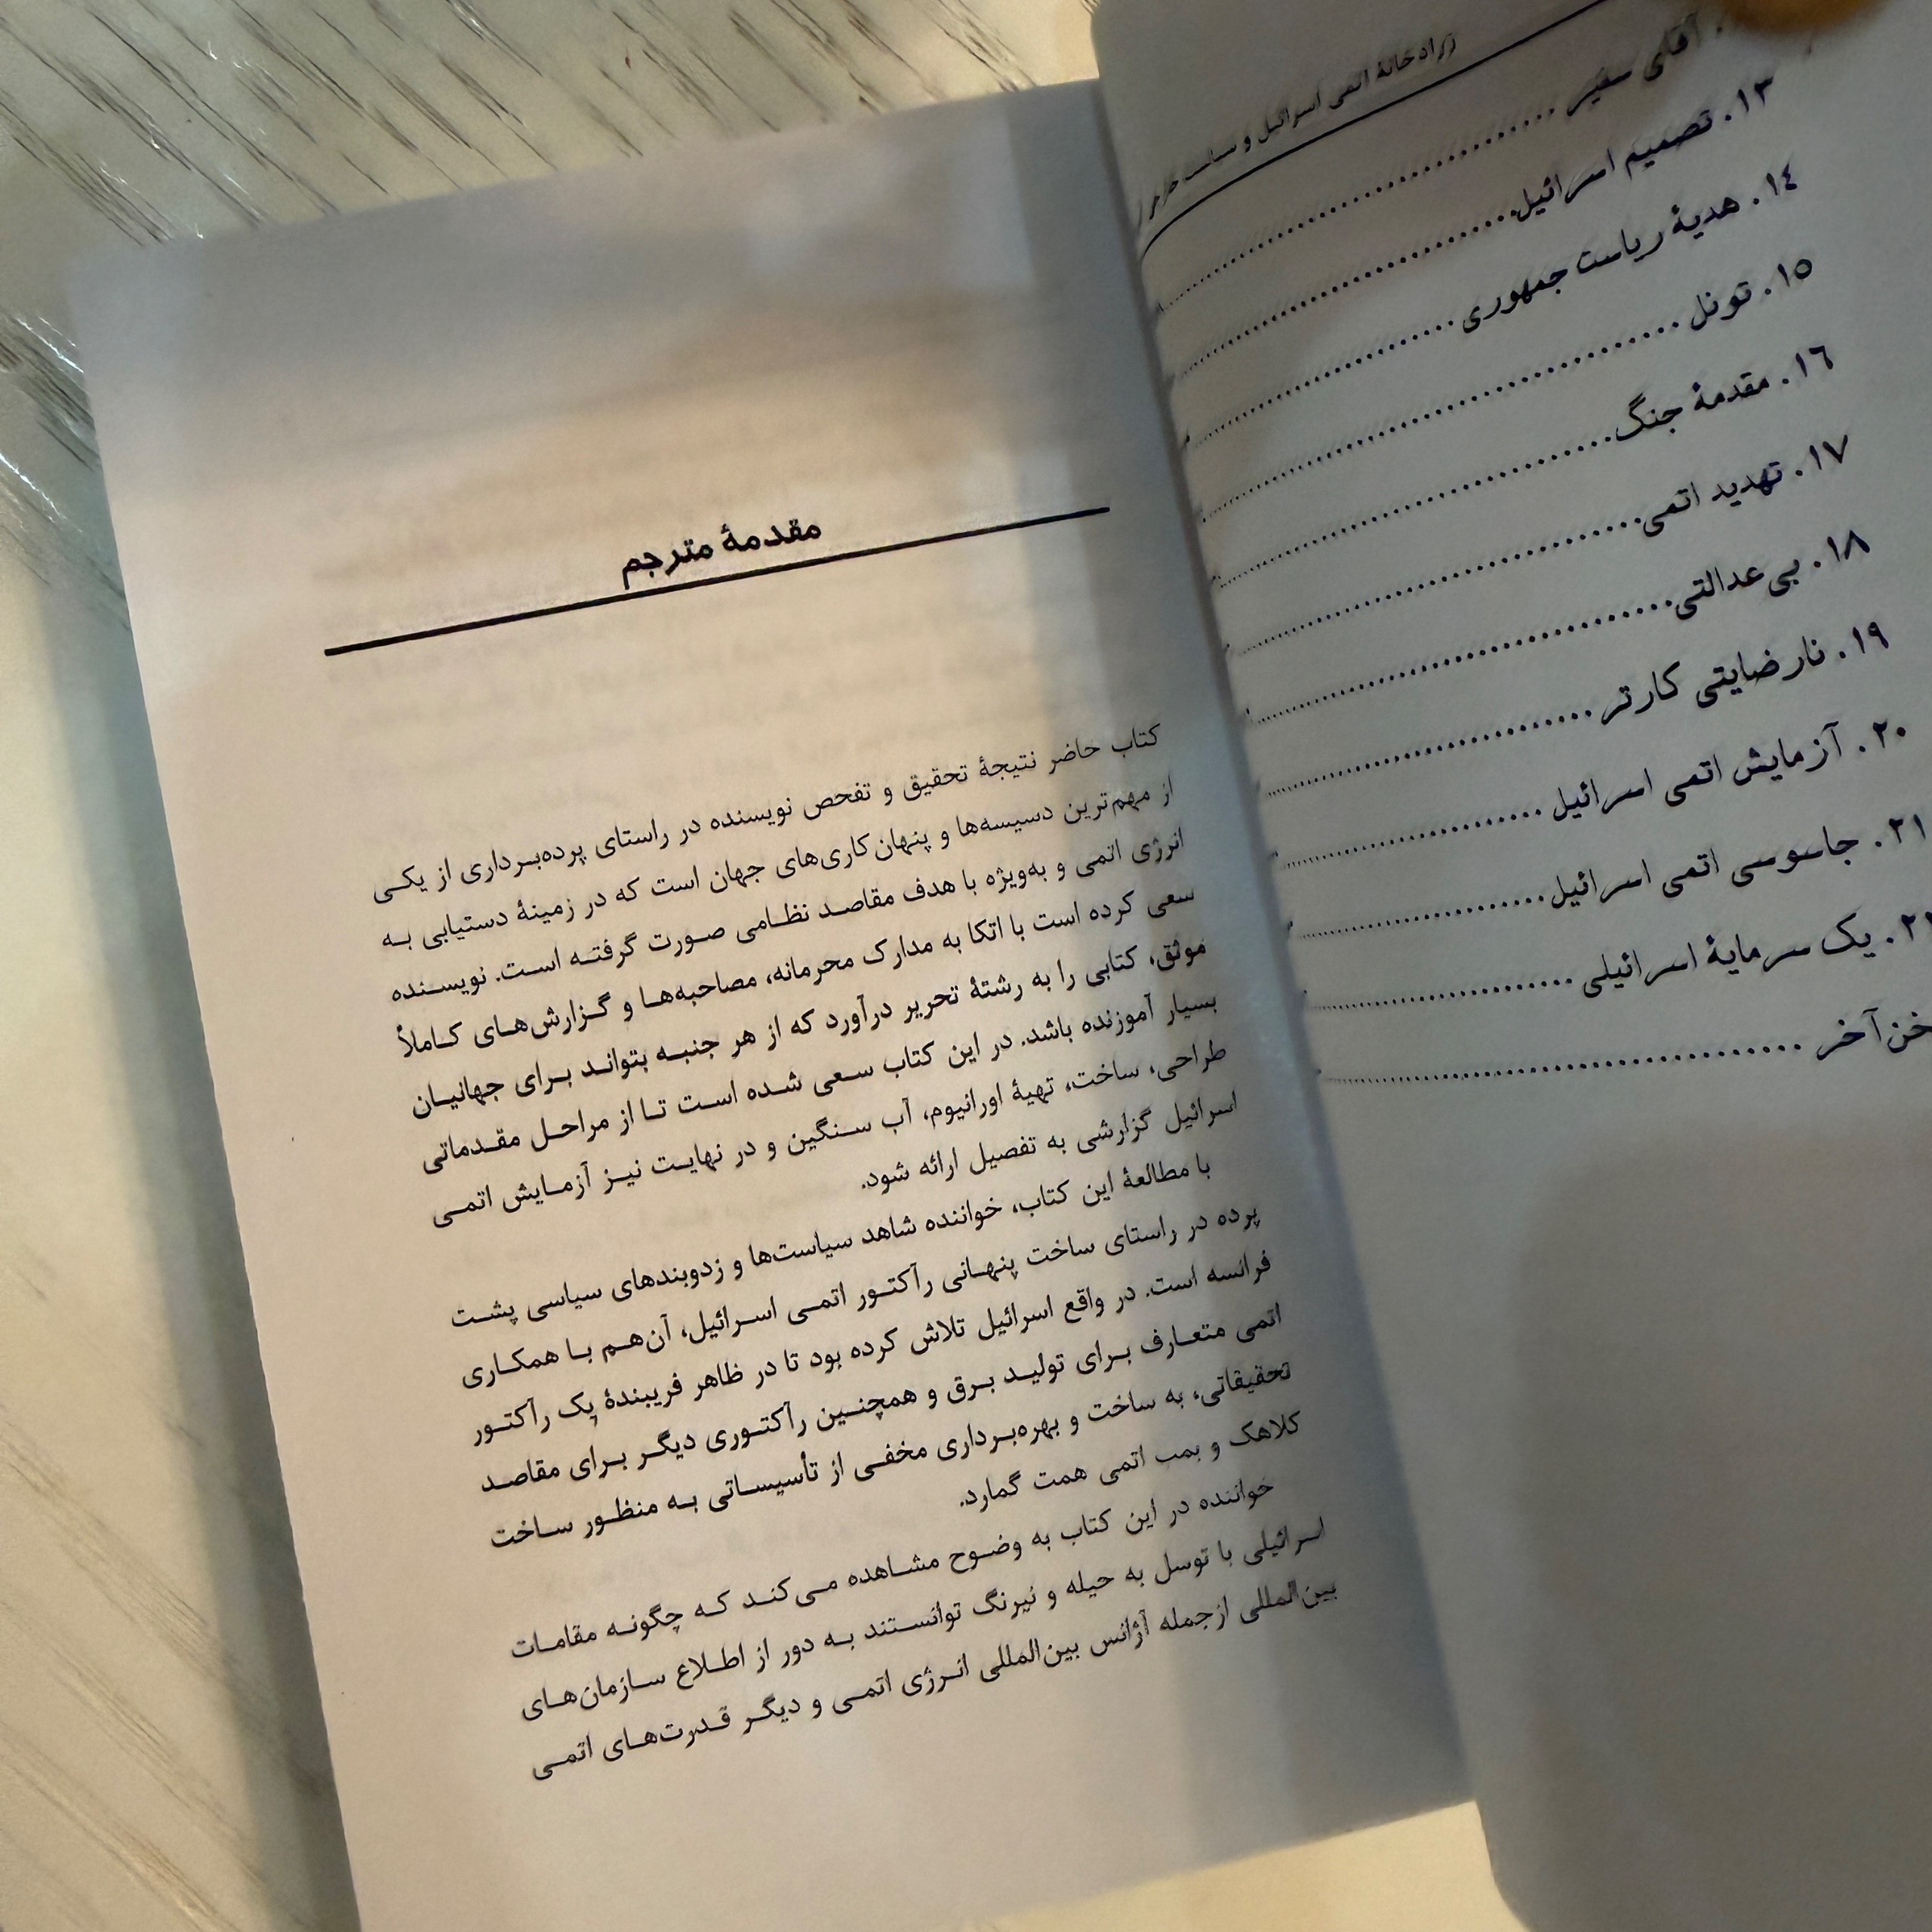 زرادخانۀ اتمی اسرائیل و سیاست خارجی
آقای سفیر
۱۳. تصمیم اسرائیل
۱۴. هدیۀ ریاست جمهوری
۱۵. تونل
۱۶. مقدمۀ جنگ
۱۷. تهدید اتمی
۱۸. بی‌عدالتی
۱۹. نارضایتی کارتر
۲۰. آزمایش اتمی اسرائیل
۲۱. جاسوسی اتمی اسرائیل
یک سرمایۀ اسرائیلی
آخر
مقدمۀ مترجم
کتاب حاضر نتیجۀ تحقیق و تفحص نویسنده در راستای پرده‌برداری از یکی
از مهم‌ترین دسیسه‌ها و پنهان‌کاری‌های جهان است که در زمینۀ دستیابی به
انرژی اتمی و به‌ویژه با هدف مقاصد نظامی صورت گرفته است. نویسنده
سعی کرده است با اتکا به مدارک محرمانه، مصاحبه‌ها و گزارش‌های کاملاً
موثق، کتابی را به رشتۀ تحریر درآورد که از هر جنبه بتواند برای جهانیان
بسیار آموزنده باشد. در این کتاب سعی شده است تا از مراحل مقدماتی
طراحی، ساخت، تهیۀ اورانیوم، آب سنگین و در نهایت نیز آزمایش اتمی
اسرائیل گزارشی به تفصیل ارائه شود.
با مطالعۀ این کتاب، خواننده شاهد سیاست‌ها و زدوبندهای سیاسی پشت
پرده در راستای ساخت پنهانی رآکتور اتمی اسرائیل، آن‌هم با همکاری
فرانسه است. در واقع اسرائیل تلاش کرده بود تا در ظاهر فریبندۀ یک رآکتور
اتمی متعارف برای تولید برق و همچنین رآکتوری دیگر برای مقاصد
تحقیقاتی، به ساخت و بهره‌برداری مخفی از تأسیساتی به منظور ساخت
کلاهک و بمب اتمی همت گمارد.
خواننده در این کتاب به وضوح مشاهده می‌کند که چگونه مقامات
اسرائیلی با توسل به حیله و نیرنگ توانستند به دور از اطلاع سازمان‌های
بین‌المللی ازجمله آژانس بین‌المللی انرژی اتمی و دیگر قدرت‌های اتمی